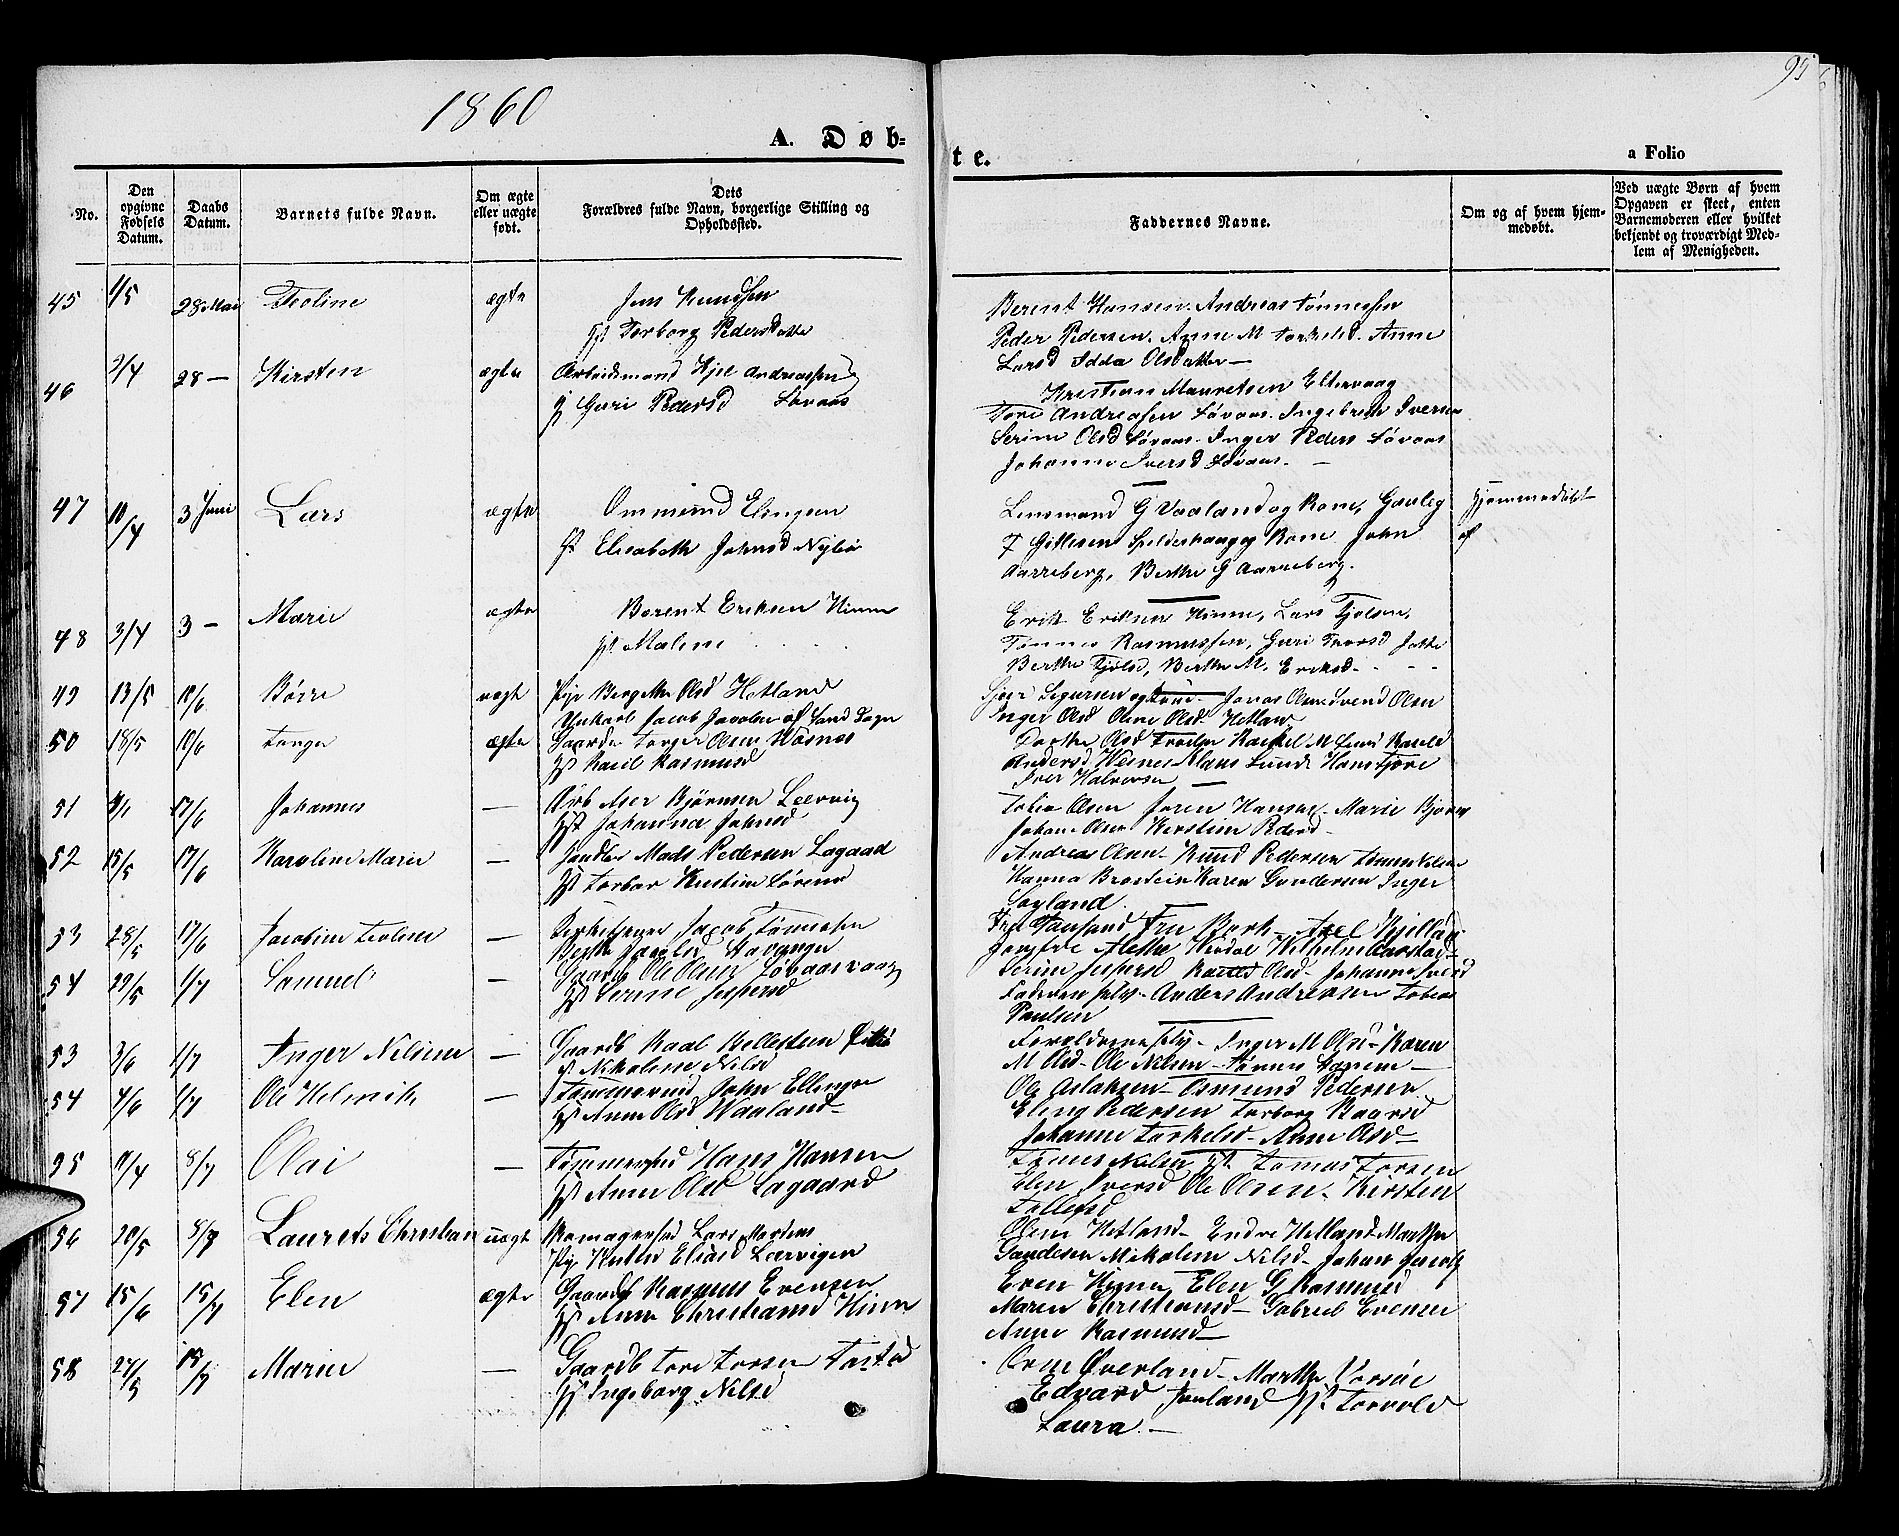 1860
95
A. Døb-
te.
a Folio
No.
Den opgivne Fødsels Datum.
Daabs Datum.
Barnets fulde Navn.
Om ægte eller uægte født.
Dets Forældres fulde Navn, borgerlige Stilling og Opholdssted.
Faddernes Navne.
Om og af hvem hjemmedøbt.
Ved uægte Børn af hvem Opgaven er skeet, enten Barnemoderen eller hvilket bekjendt og troværdigt Medlem af Menigheden.
45 1/5 28 Mai Teoline ægte Jens Knudsen
Torborg Pedersdatter
Berent Hansen. Andreas Tønnesen
Peder Pedersen. Anne M Torkelsd. Anne
Larsd Idda Olsdatter —
46 2/4 28 — Kirsten ægte Arbeidsmand Kjel Andreassen
Guri Pedersd Søvaas
Kristian Mauretsen Eltervaag
Tore Andreasen Søvaas. Ingebreth Iversen
Serine Olsd Søvaas. Inger Peders Søvaas
Johanne Iversd Søvaas. —
47 10/4 3 Juni Lars ægte Ommund Elingsen
Elisabeth Johnsd Nybø
Lensmand G Vaaland og Kone, Gauleg
T Gittesen Spilderhaug og Kone John
Aarreberg, Berthe G Aarreberg.
Hjemmedøbt
af
48 3/4 3 — Marie ægte Berent Eriksen Hinna
Malene
Erik Eriksen Hinna, Lars Tjølsen,
Tønnes Rasmussen, Guri Thorsd Jotte
Berthe Tjølsd, Berthe M. Eriksd
49 13/5 10/6 Børre uægt Pige Bergethe Olsd Hetland
Ynkarl Jacob Jacobsen af Sand Sogn
Sigursen og Kone — Jonas Olsen Svend Olsen
Inger Olsd Oline Olsd Hetland
50 18/5 10/6 Torger ægte Gaardb Torger Olsen Wasnes
Rakel Rasmusd
Dorthe Olsd Rachel M
Andersd Wesnes Klaus Lunde Hans Tjøre
Iver Halvorsen
51 17/6 Johannes — Arb Aser Bjørnsen Leervig
Johanna Johnsd
Tobia Olsen Søren Hansen, Marie Bjørns
Johan Olsen Kirstine Pedersd
52 15/5 17/6 Karoline Marie — Handler Mads Pedersen Lagaard
Torbor Kristine Sørens
Andreas Olsen. Knud Pedersen Tønnes Nilsen
Hanna Brostein Karen Gundersen Inger
Soyland
53 28/5 17/6 Jacobine Teoline — Kirketjener Jacob Tønnesen
Berthe Jacobsd Stavanger
Fru Fru Bork — Axel Kjelland
Alethe Wilhelm
54 29/5 1/7 Samuel — Gaardb Ole Olsen Søvaasvaag
Serine Jespersd
Serine Jespersd Rakel Olsd — Johanne Iversd
Faderen selv — Anders Andreasen Tobias
Paulsen
53 3/6 1/7 Inger Nilsine — Gaardb Raal Hellesteen
Nikoline Nilsd
Foreldrene selv — Inger M Olsd — Karen
M Olsd — Ole Nilsen —
54 4/6 1/7 Ole Helmik — Tømmermd John Ellingsen
Anne Olsd Waaland
Ole Aslaksen — Osmund Pedersen
Eling Pedersen Torborg Baarsd
Johanne Torkelsd — Anne Olsd —
55 9/4 8/7 Olai — Tømmermd Hans Hansen
Anne Olsd Lagaard
Tønnes Nilsen Tomas Torsen
Elen Iversd Ole Olsen — Kirsten
Tollefsd
56 20/5 8/7 Laurets Christian uægt Skomagersvd Lars Mortens
Pige Elisasd Leervigen
Olene Hetland — Endre Hetland Marthe
Gundersen Mikaline Nilsd — Johan
57 15/6 15/7 Elen ægte Gaardb Rasmus Evensen
Anne Christiansd Hinna
Even Hinna Elen G Rasmusd
Maren Christiansd — Gabriel Evensen
Anne Rasmusd —
58 27/5 15/7 Marie — Gaardb Tore Torsen Tasta
Ingeborg Nilsd
Orm Øverland — Marthe
Edvard Torvold
Laura. —